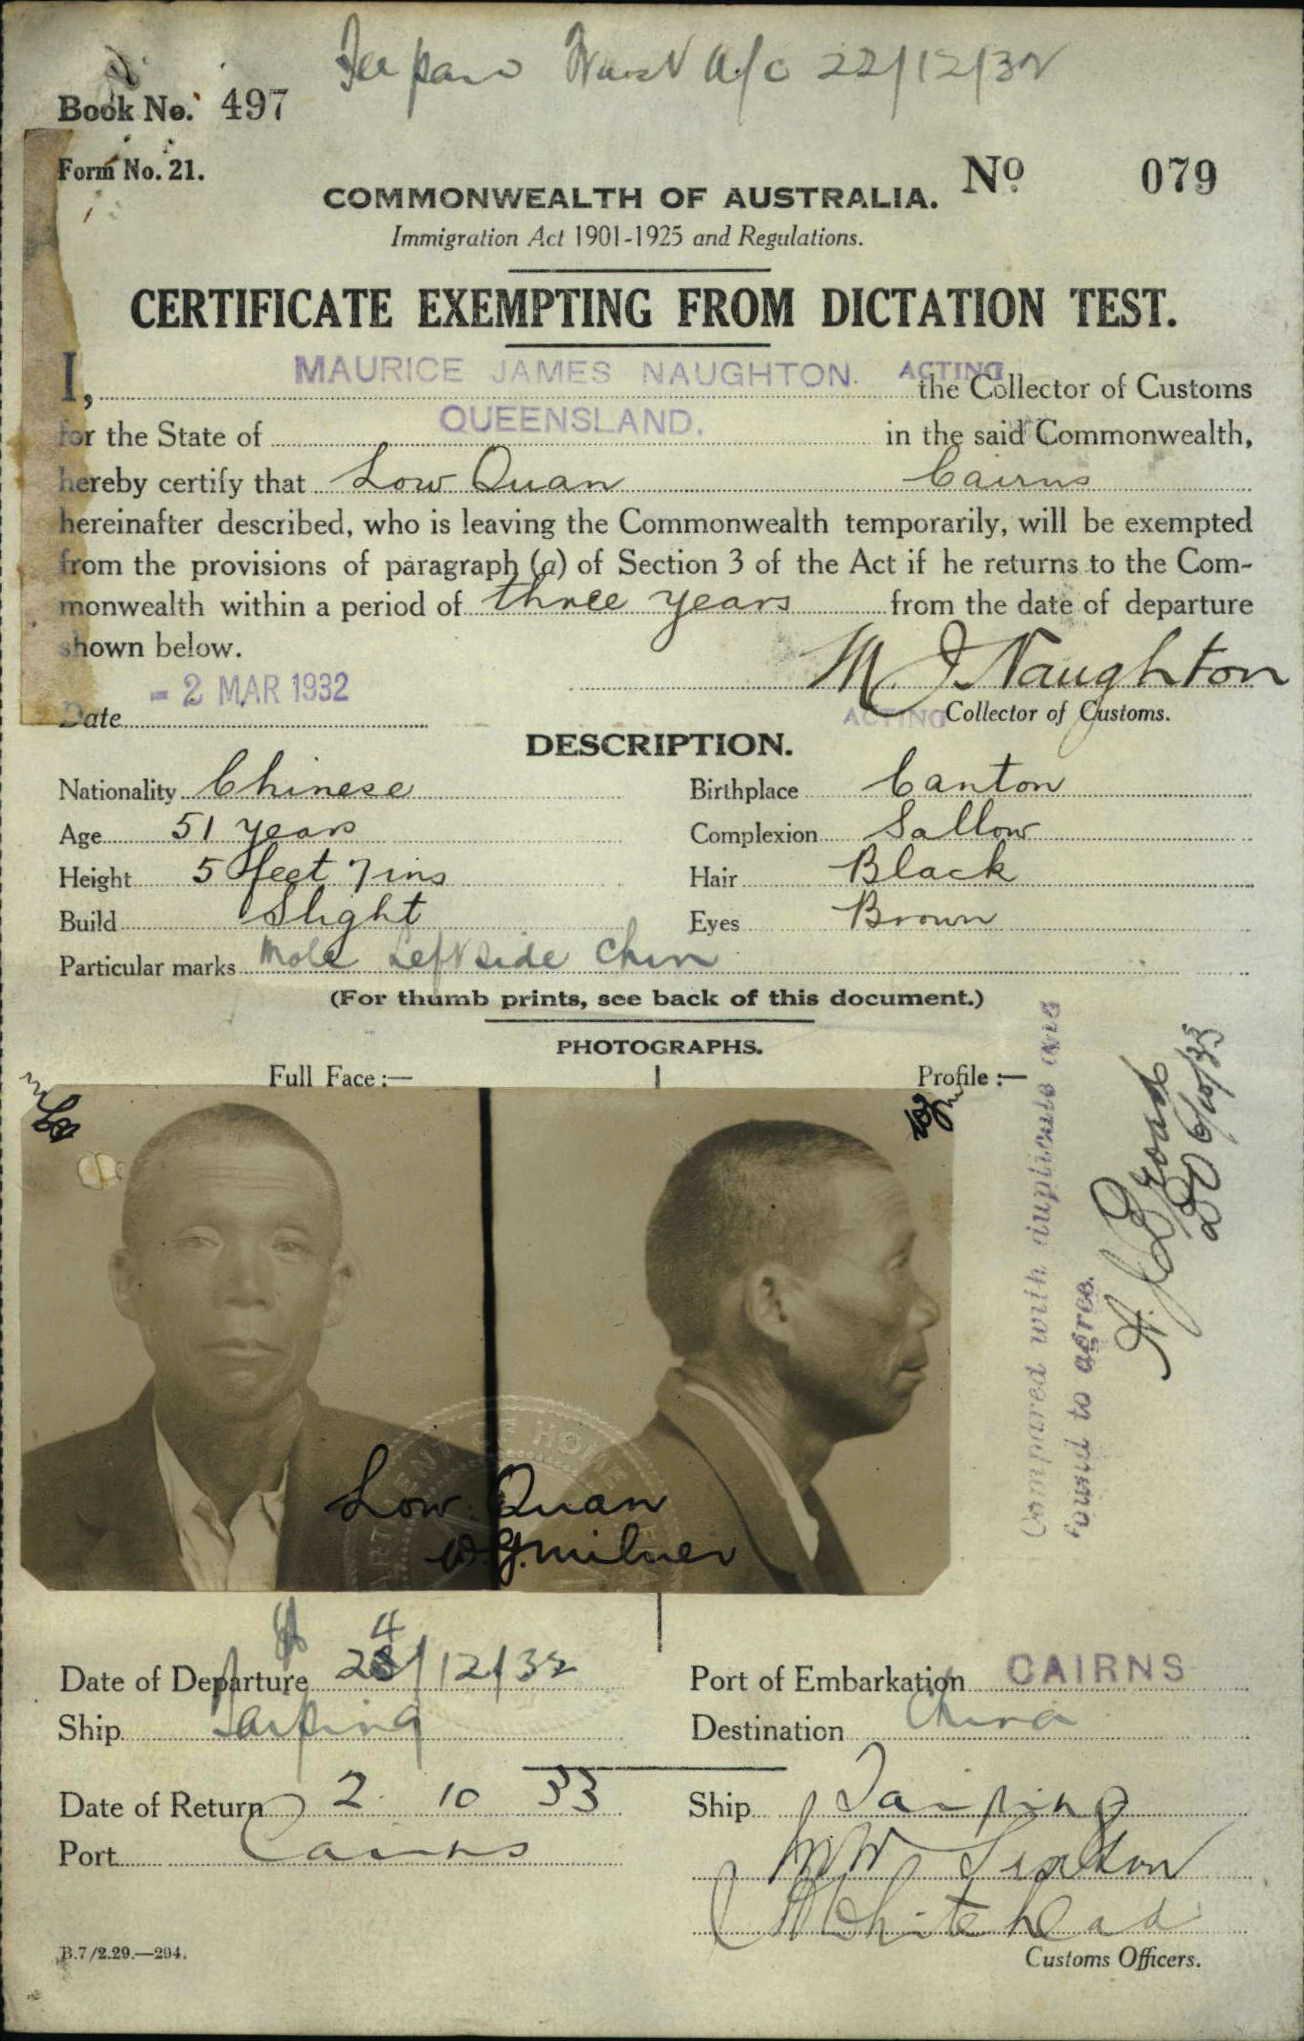 22/12/32
Book No. 497
Form No. 21.
No 079
COMMONWEALTH OF AUSTRALIA.
Immigration Act 1901-1925 and Regulations.
CERTIFICATE EXEMPTING FROM DICTATION TEST.
I, MAURICE JAMES NAUGHTON. ACTING the Collector of Customs
for the State of QUEENSLAND. in the said Commonwealth,
hereby certify that Low Quan Cairns
hereinafter described, who is leaving the Commonwealth temporarily, will be exempted
from the provisions of paragraph (a) of Section 3 of the Act if he returns to the Com-
monwealth within a period of three years from the date of departure
shown below.
M. J. Naughton
Date - 2 MAR 1932
ACTING Collector of Customs.
DESCRIPTION.
Nationality Chinese Birthplace Canton
Age 51 years Complexion Sallow
Height 5 feet 7 ins Hair Black
Build Slight Eyes Brown
Particular marks Mole Left side Chin
(For thumb prints, see back of this document.)
PHOTOGRAPHS.
Full Face:— Profile:—
Compared with duplicate and
found to agree.
6/10/33
Low Quan
W.G. Milner
Date of Departure 24/12/32 Port of Embarkation CAIRNS
Ship Taiping Destination China
Date of Return 2. 10 33 Ship Taiping
Port Cairns
Whitehead
Customs Officers.
B.7/2.29.—294.